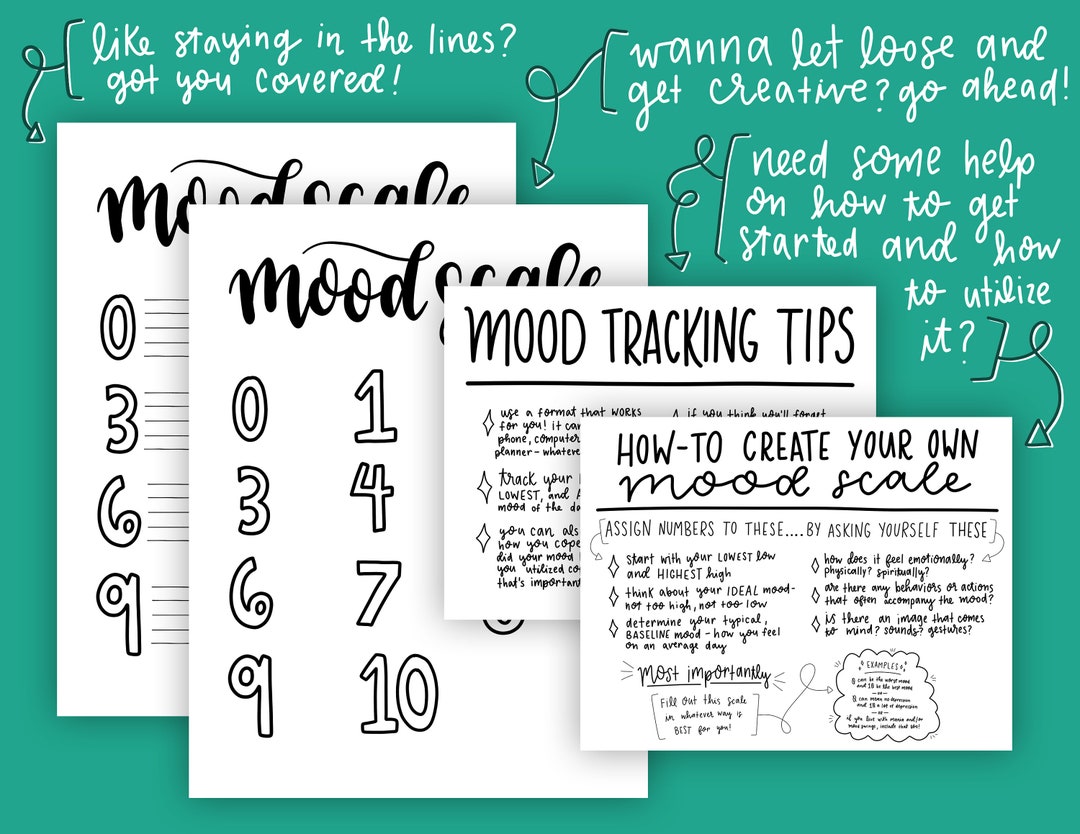 like staying in the lines?
got you covered!
wanna let loose and
get creative? go ahead!
need some help
on how to get
started and how
to utilize
it?
mood scale
0
3
6
9
mood scale
0 1
3 4
6 7
9 10
MOOD TRACKING TIPS
use a format that works
for you! it can
phone, computer
planner - whatever
track your
LOWEST, and
mood of the da
you can als
how you cope
did your mood
you utilized co
that's important
if you think you'll forget
HOW-TO CREATE YOUR OWN
mood scale
[ASSIGN NUMBERS TO THESE....BY ASKING YOURSELF THESE]
start with your LOWEST low
and HIGHEST high
think about your IDEAL mood-
not too high, not too low
determine your typical,
BASELINE mood - how you feel
on an average day
how does it feel emotionally?
physically? spiritually?
are there any behaviors or actions
that often accompany the mood?
is there an image that comes
to mind? sounds? gestures?
most importantly
Fill out this scale
in whatever way is
BEST for you!
EXAMPLES
0 can be the worst mood
and 10 be the best mood
-or-
0 can mean no depression
and 10 a lot of depression
-or-
if you live with mania and/or
mood swings, include that too!